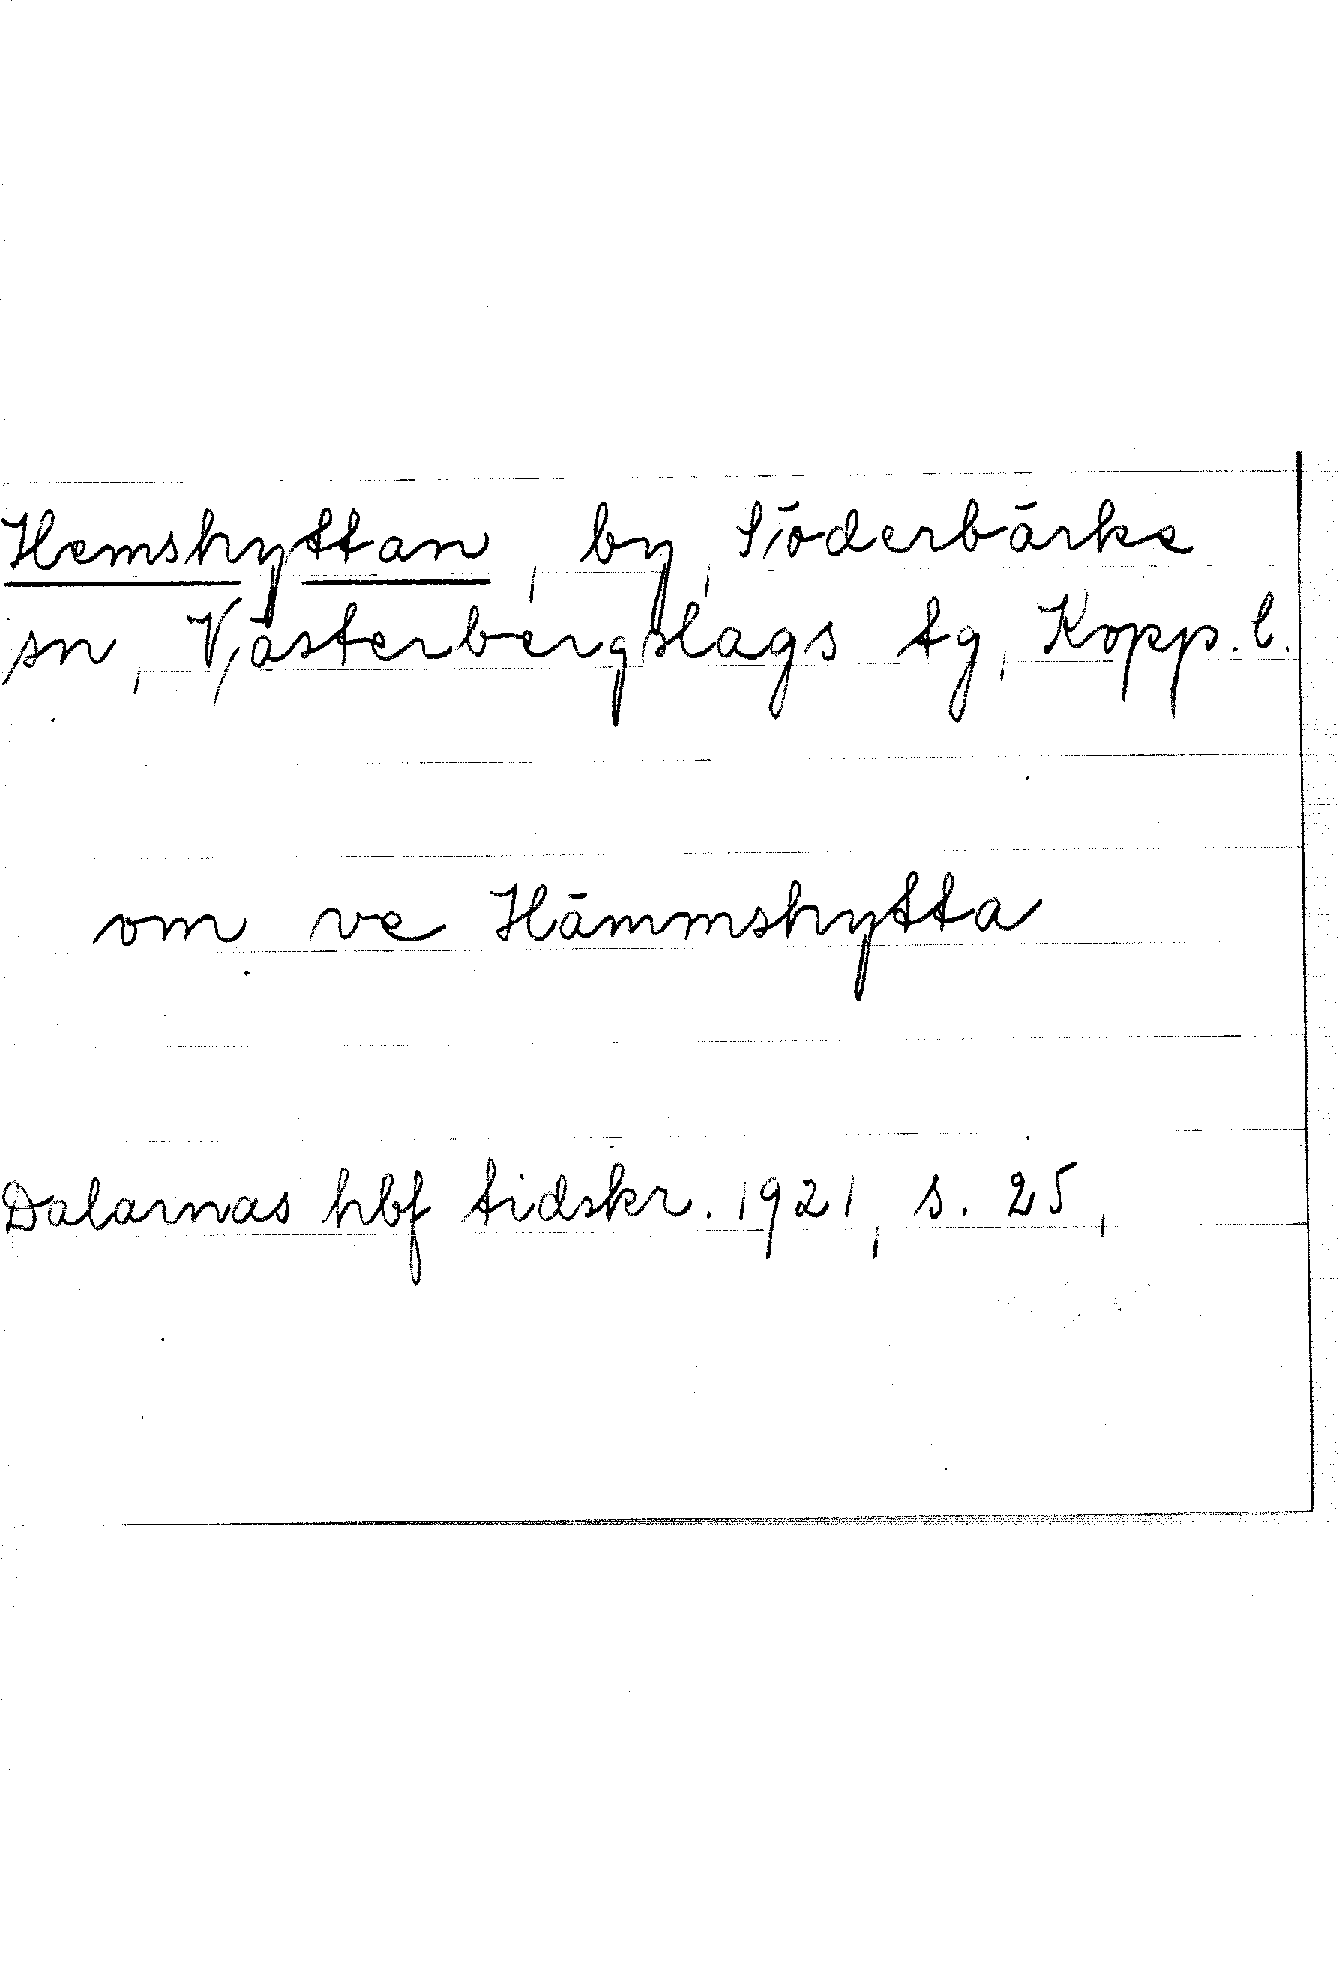 Hemshyttan, by, Söderbärke
sn, Västerbergslags tg, Kopp. l.
om ve Hämmshytta
Dalarnas hbf tidskr. 1921, s. 25,